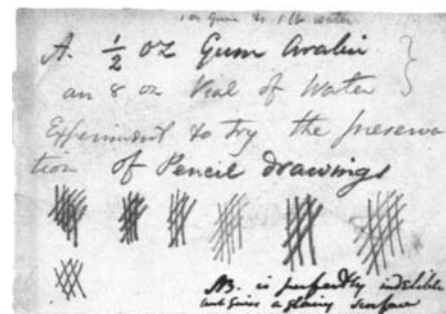 1 oz Gum to 1 lb water
A. 1/2 oz Gum Arabic
an 8 oz Vial of Water
Experiment to try the preserva
tion of Pencil drawings
NB. is perfectly indelible
and gives a glairy surface